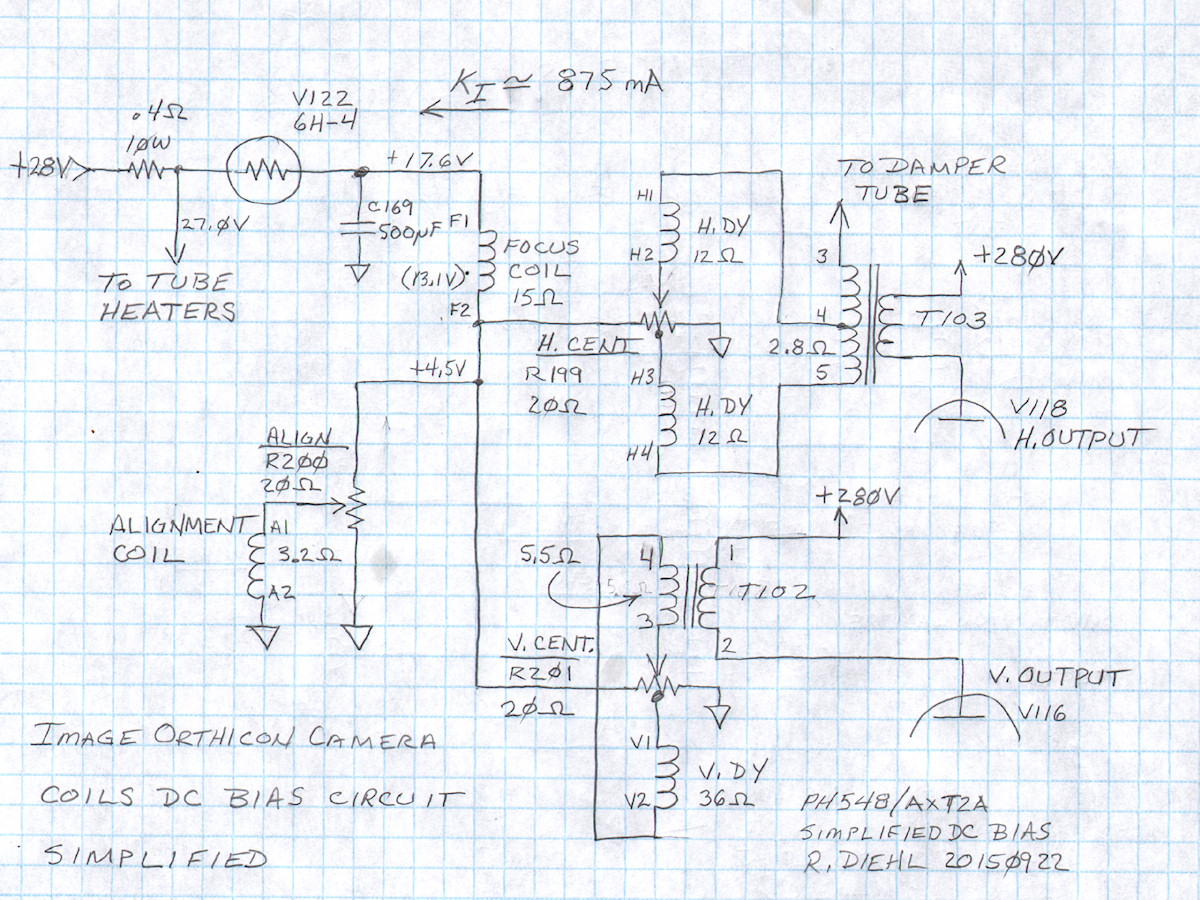 K_I ≃ 875 mA
.4Ω
10W
V122
6H-4
+28V
+17.6V
27.0V
TO TUBE
HEATERS
C169
500µF
F1
FOCUS
COIL
15Ω
(13.1V)
F2
H1
H2
H.DY
12Ω
TO DAMPER
TUBE
3
4
2.8Ω
5
+280V
T103
V118
H.OUTPUT
H. CENT
R199
20Ω
H3
H4
H.DY
12Ω
+4.5V
ALIGN
R200
20Ω
ALIGNMENT
COIL
A1
3.2Ω
A2
+280V
5.5Ω
4
3
1
2
T102
V. CENT.
R201
20Ω
V. OUTPUT
V116
V1
V2
V. DY
36Ω
IMAGE ORTHICON CAMERA
COILS DC BIAS CIRCUIT
SIMPLIFIED
PH548/AXT2A
SIMPLIFIED DC BIAS
R. DIEHL 20150922